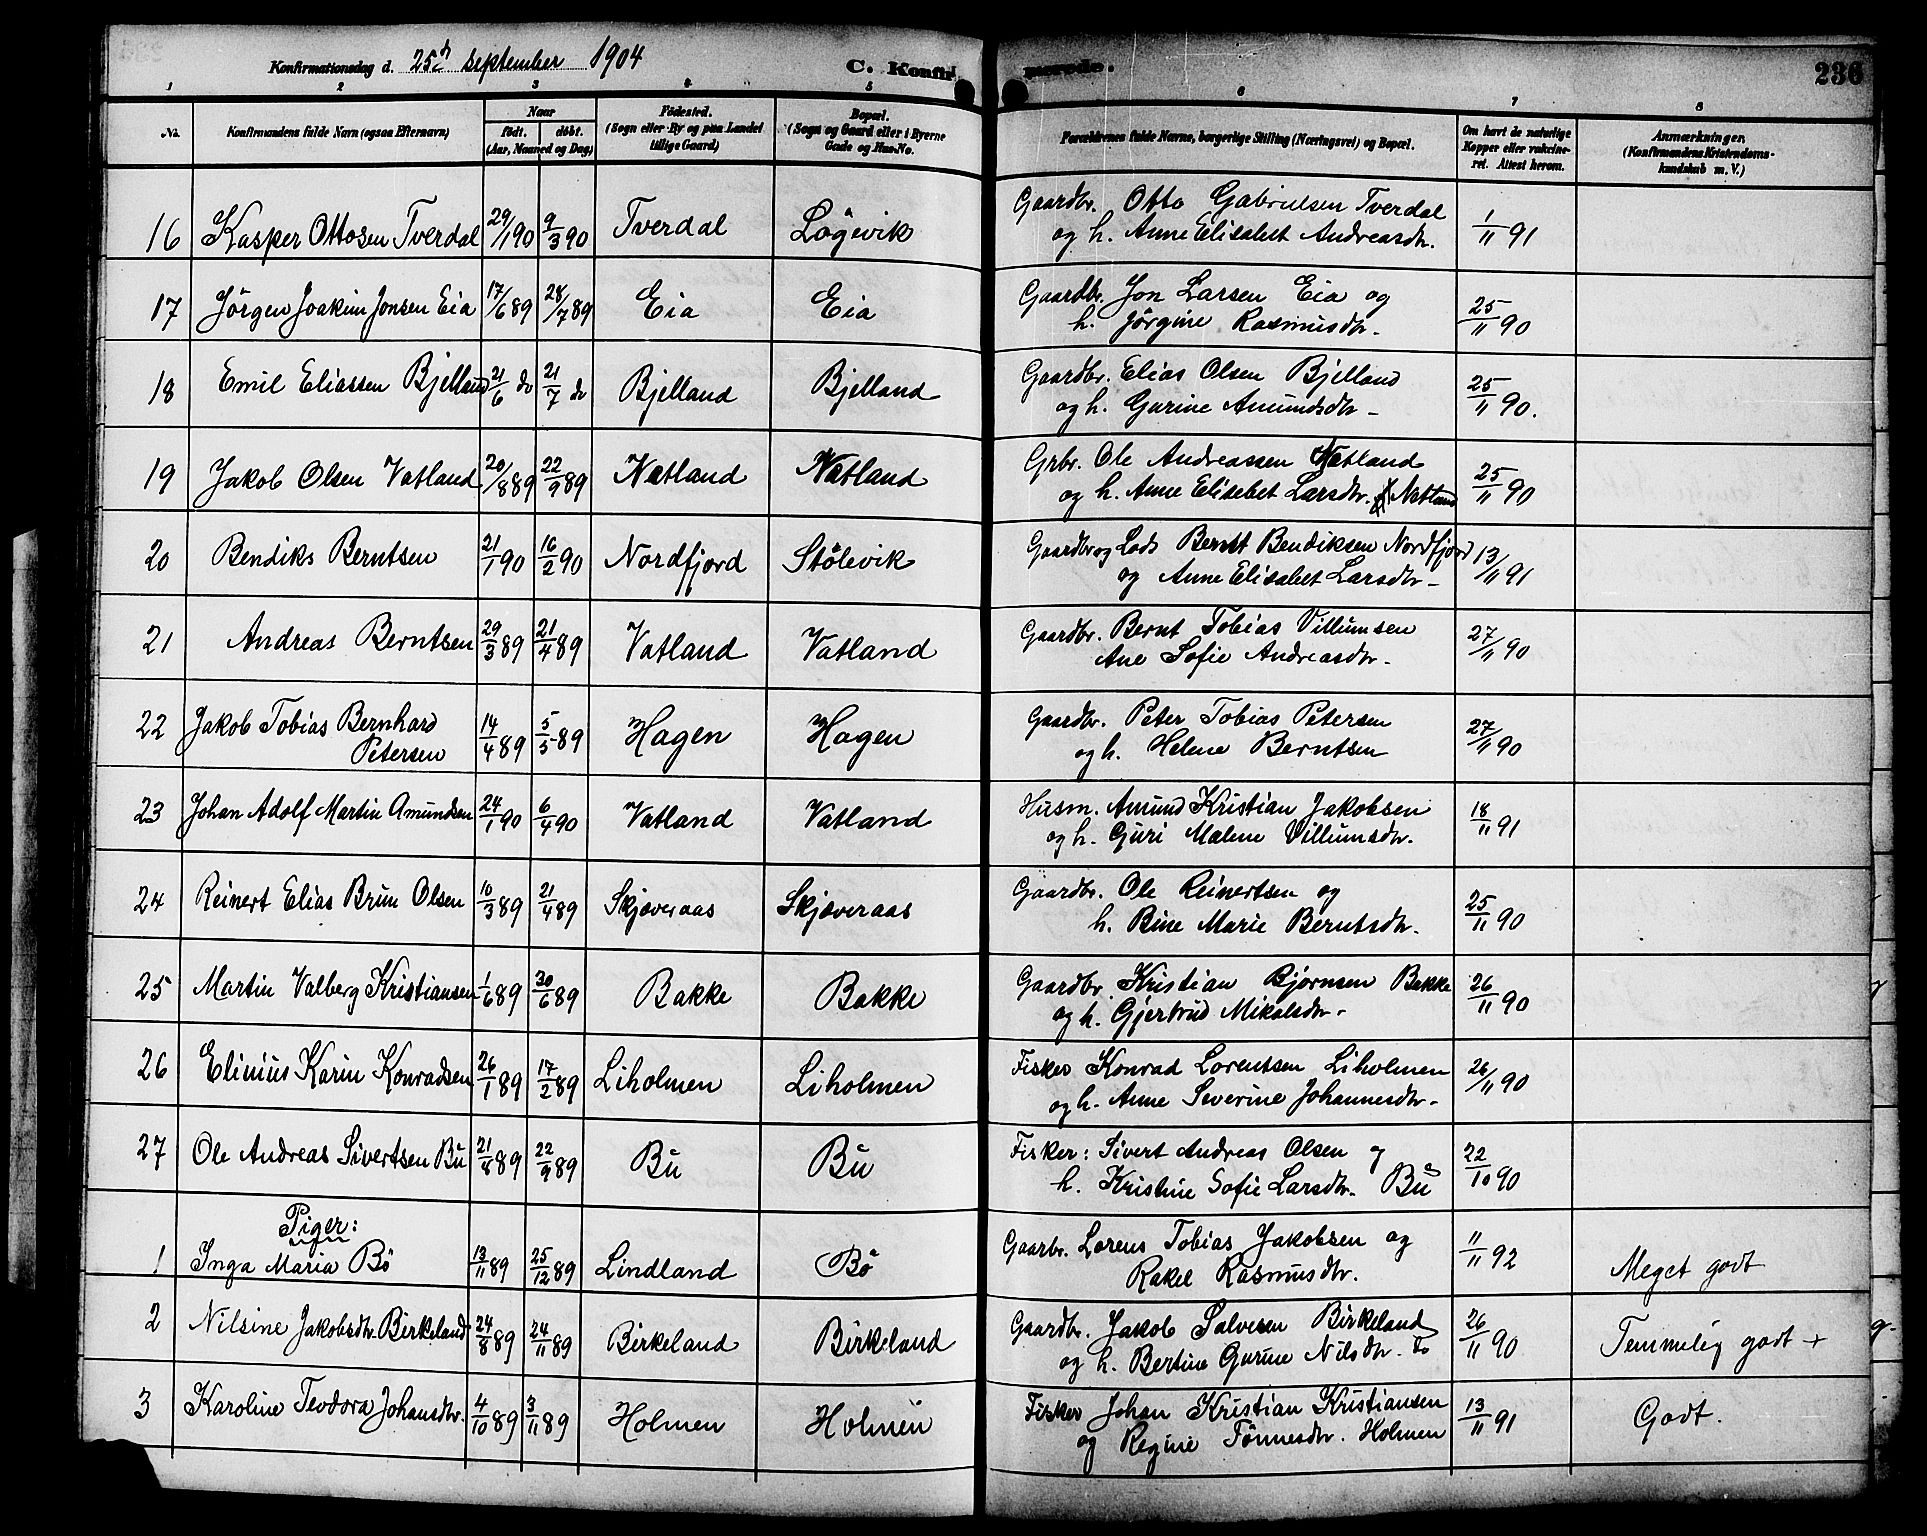 Konfirmationsdag d. 25d September 1904 C. Konfirmerede. 236
1 2 3 4 5 6 7 8
No. Konfirmandens fulde Navn (ogsaa Efternavn) Naar født. døbt. (Aar, Maaned og Dag) Fødested. (Sogn eller By og paa Landet tillige Gaard) Bopæl. (Sogn og Gaard eller i Byerne Gade og Hus-No. Forældrenes fulde Navne, borgerlige Stilling (Næringsvei) og Bopæl. Om havt de naturlige Kopper eller vakcineret. Attest herom. Anmærkninger. (Konfirmandens Kristendomskundskab m. V.)
16 Kasper Ottosen Tverdal 29/1 90 9/3 90 Tverdal Løgevik Gaardbr. Otto Gabrielsen Tverdal
og h. Anne Elisabet Andreasdtr. 1/11 91
17 Jørgen Joakim Jonsen Eia 17/6 89 28/7 89 Eia Eia Gaardbr. Jon Larsen Eia og
h. Jørgine Rasmusdtr. 25/11 90
18 Emil Eliassen Bjelland 21/6 do 21/7 do Bjelland Bjelland Gaardbr. Elias Olsen Bjelland
og h. Gurine Amundsdtr. 25/11 90.
19 Jakob Olsen Vatland 20/8 89 22/9 89 Natland Natland Grbr. Ole Andreassen Natland
og h. Anne Elisebet Larsdtr. Natland 25/11 90
20 Bendiks Berntsen 21/1 90 16/2 90 Nordfjord Stølevik Gaardbr og Lods Bernt Bendiksen Nordfjord
og Anne Elisabet Larsdtr. 13/11 91
21 Andreas Berntsen 29/3 89 21/4 89 Vatland Vatland Gaardbr. Bernt Tobias Villumsen
Ane Sofie Andreasdtr. 27/11 90
22 Jakob Tobias Bernhard
Petersen 14/4 89 5/5 89 Hagen Hagen Gaardbr. Peter Tobias Petersen
og h. Helene Berntsen 27/11 90
23 Johan Adolf Martin Amundsen 24/1 90 6/4 90 Vatland Vatland Husm. Amund Kristian Jakobsen
og h. Guri Malene Villumsdtr. 18/11 91
24 Reinert Elias Brun Olsen 10/3 89 21/4 89 Skjæveraas Skjæveraas Gaardbr. Ole Reinertsen og
h. Bine Marie Berntsdtr. 25/11 90
25 Martin Valberg Kristiansen 1/6 89 30/6 89 Bakke Bakke Gaardbr. Kristian Bjørnsen Bakke
og h. Gjertrud Mikalsdtr. 26/11 90
26 Elinius Karin Konradsen 26/1 89 17/2 89 Liholmen Liholmen Fisker Konrad Lorentsen Liholmen
og h. Anne Severine Johannesdtr. 26/11 90
27 Ole Andreas Sivertsen Bu 21/8 89 22/9 89 Bu Bu Fisker: Sivert Andreas Olsen og
h. Kristine Sofie Larsdtr. Bu 22/10 90
Piger:
1 Inga Maria Bø 13/11 89 25/12 89 Lindland Bø Gaarbr. Lorens Tobias Jakobsen og
Rakel Rasmusdtr. 11/11 92 Meget godt
2 Nilsine Jakobsdtr. Birkeland 24/8 89 24/11 89 Birkeland Birkeland Gaardbr. Jakob Salvesen Birkeland
og h. Bertine Gurine Nilsdtr. do 26/11 90 Temmelig godt +
3 Karoline Teodora Johansdtr. 4/10 89 3/11 89 Holmen Holmen Fisker Johan Kristian Kristiansen
og Regine Tønnesdtr. Holmen 13/11 91 Godt.